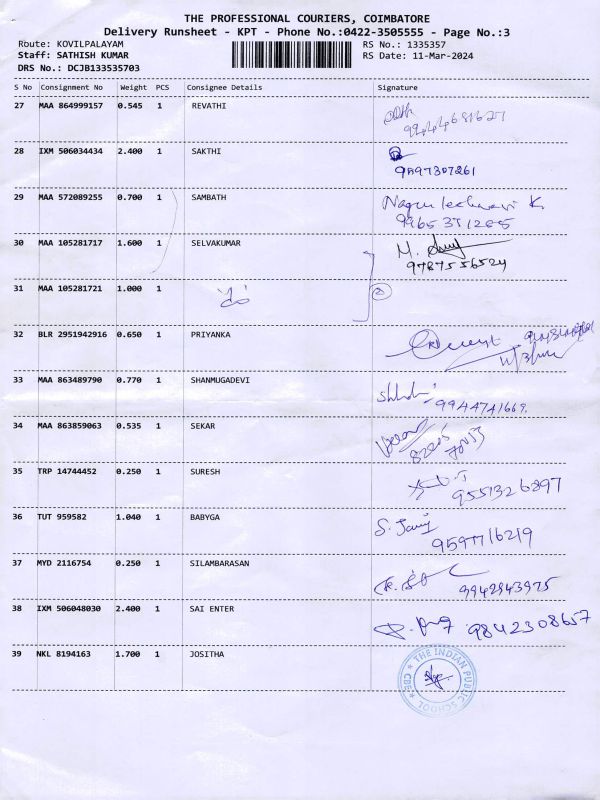 THE PROFESSIONAL COURIERS, COIMBATORE
Delivery Runsheet - KPT - Phone No.:0422-3505555 - Page No.:3
Route: KOVILPALAYAM
Staff: SATHISH KUMAR
DRS No.: DCJB133535703
RS No.: 1335357
RS Date: 11-Mar-2024
S No Consignment No Weight PCS Consignee Details Signature
27 MAA 864999157 0.545 1 REVATHI
9444681627
28 IXM 506034434 2.400 1 SAKTHI
9897307261
29 MAA 572089255 0.700 1 SAMBATH
K
9965351265
30 MAA 105281717 1.600 1 SELVAKUMAR M.
9787556524
31 MAA 105281721 1.000 1 2
32 BLR 2951942916 0.650 1 PRIYANKA
33 MAA 863489790 0.770 1 SHANMUGADEVI
9944741669
34 MAA 863859063 0.535 1 SEKAR
35 TRP 14744452 0.250 1 SURESH
9551326897
36 TUT 959582 1.040 1 BABYGA
9597716219
37 MYD 2116754 0.250 1 SILAMBARASAN
9942943975
38 IXM 506048030 2.400 1 SAI ENTER 9842308657
39 NKL 8194163 1.700 1 JOSITHA
THE INDIAN PUBLIC SCHOOL
CBE